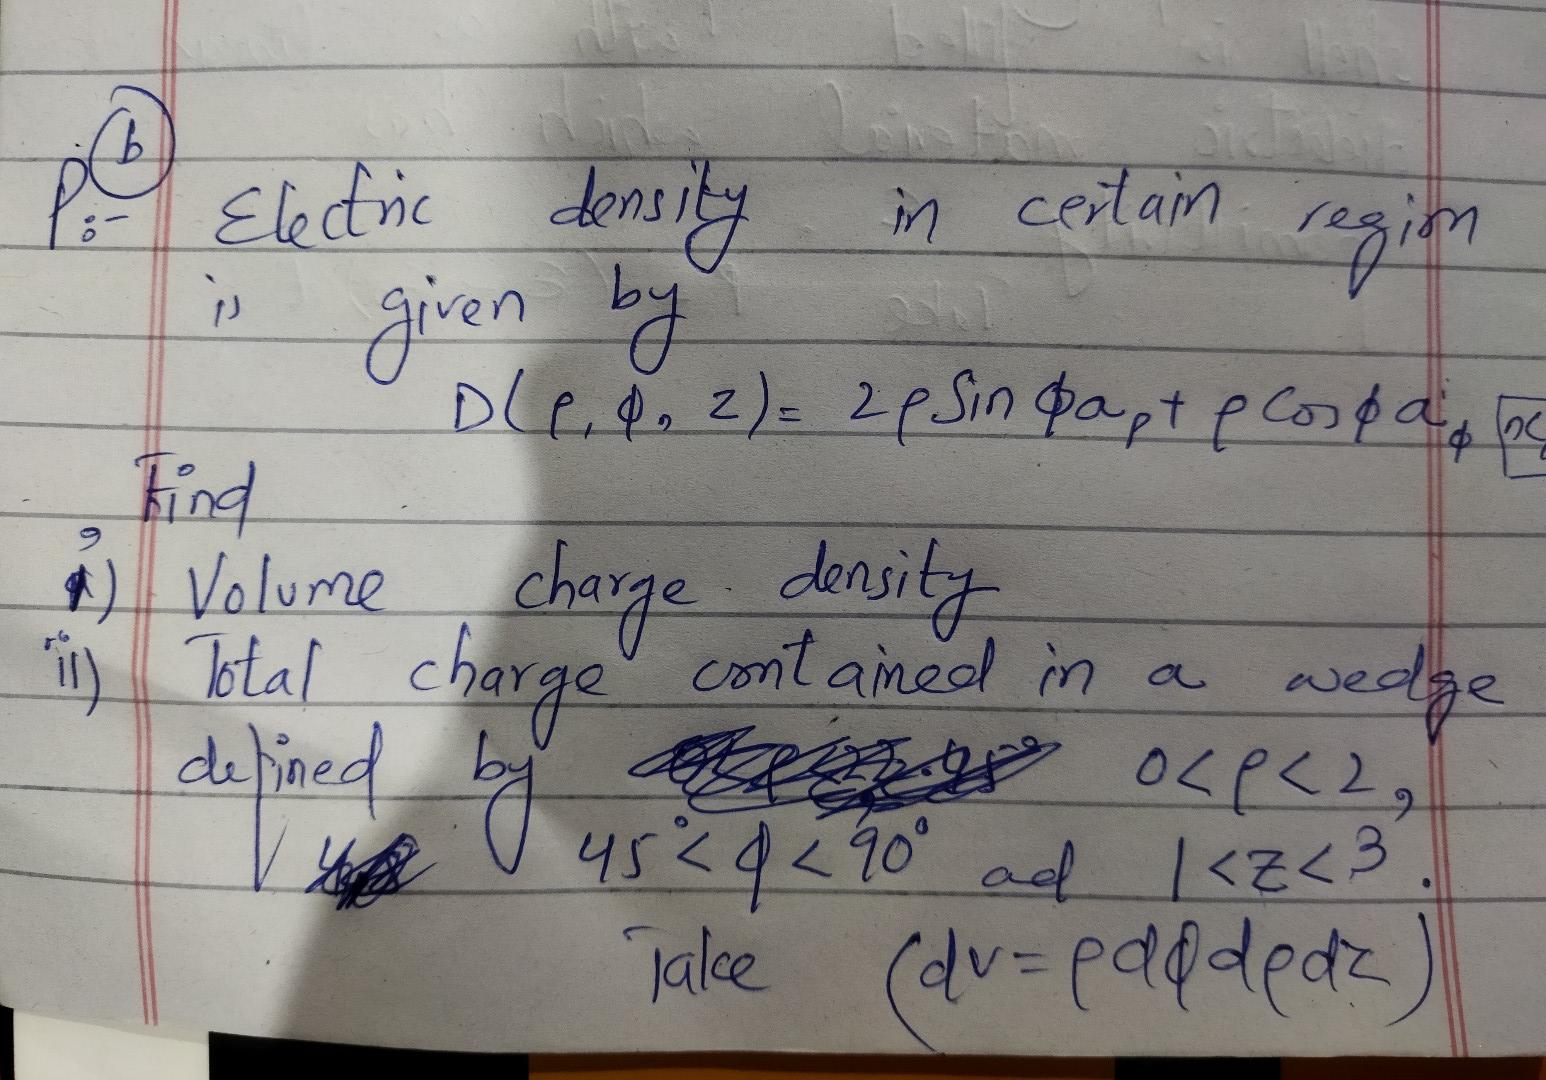 b
P:- Electric density in certain region
is given by
D(ρ, φ, z) = 2ρ Sin φ aρ + ρ Cos φ aφ
Find
i) Volume charge density
ii) Total charge contained in a wedge
defined by 0<ρ<2,
45°<φ<90° ad 1<z<3.
Take (dv=ρdφdρdz)